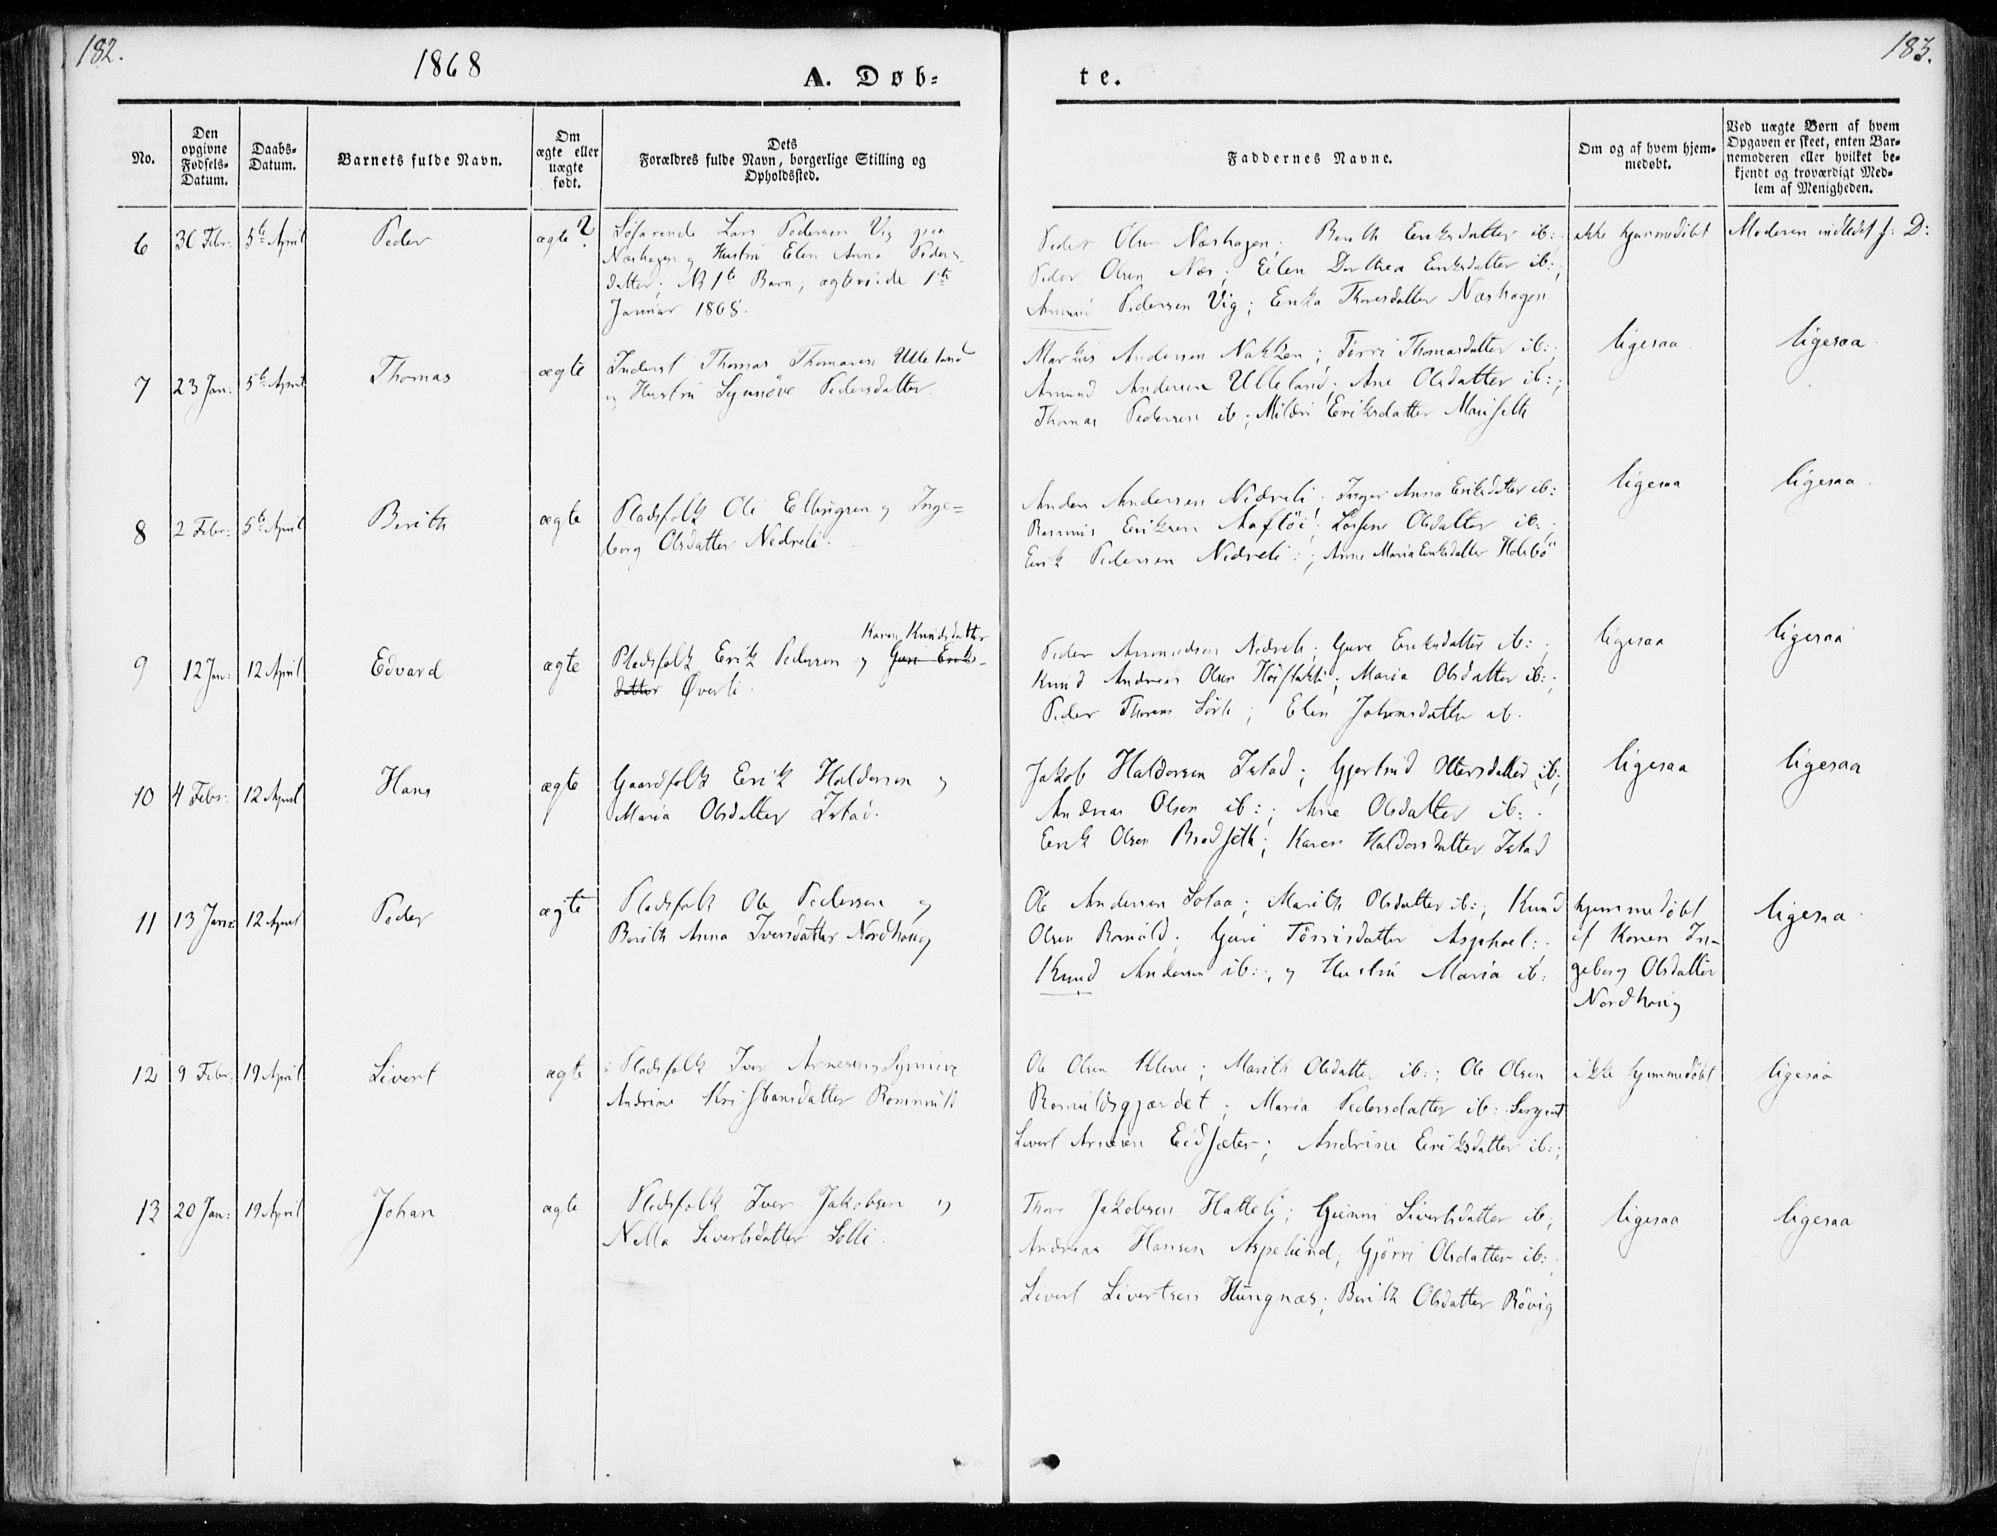 182.
1868
A. Døb-
te.
183.
No.
Den opgivne Fødsels-Datum.
Daabs-Datum.
Barnets fulde Navn.
Om ægte eller uægte født.
Dets Forældres fulde Navn, borgerlige Stilling og Opholdssted.
Faddernes Navne.
Om og af hvem hjem-medøbt.
Ved uægte Børn af hvem Opgaven er skeet, enten Bar-nemoderen eller hvilket be-kjendt og troværdigt Med-lem af Menigheden.
6
Febr:
5te April
Peder
ægte ?
Söfarende Lars Pedersen Vig paa
Næshagen og Hustru Elen Anna Peders-
datter; NB 1ste Barn, ægteviede 1ste
Januar 1868.
Peder Olsen Næshagen; Berith Eriksdatter ib:;
Peder Olsen Næs; Elen Dorthea Eriksdatter ib:;
Amund Pedersen Vig; Erika Thoresdatter Næshagen
ikke hjemmedöbt
Moderen indledet s: D:
7
23 Jan:
5te April
Thomas
ægte
Inderst Thomas Thomasen Ulleland
og Hustru Synnöve Pedersdatter.
Markus Andersen Nakken; Törri Thomasdatter ib:;
Amund Andersen Ulleland; Ane Olsdatter ib:;
Thomas Pedersen ib; Mildri Eriksdatter
ligesaa
ligesaa
8
2 Febr:
5te April
Berith
ægte
Pladsfolk Ole Ellingsen og Inge-
borg Olsdatter Nedreli.
Anders Andersen Nedreli; Inger Anna Eriksdatter ib:
Rasmus Eriksen Aaflöi; Olsdatter ib:;
Erik Pedersen Nedreli:; Anne Maria Eriksdatter Holsbö
ligesaa
ligesaa
9
12 Jan:
12 April
Edvard
ægte
Karen Knudsdatter
Pladsfolk Erik Pedersen og Guri Erik-
datter Överli.
Peder Amundsen Nedreli; Guri Eriksdatter ib:;
Knud Andreas Olsen; Maria Olsdatter ib:;
Peder; Elen Johansdatter ib.
ligesaa
ligesaa
10
4 Febr:
12 April
Hans
ægte
Gaardfolk Erik Haldorsen og
Maria Olsdatter Istad.
Jakob Haldorsen Istad; Gjertrud Ottersdatter ib;
Andreas Olsen ib:; Ane Olsdatter ib:
Erik Olsen Bradseth; Karen Haldorsdatter Istad
ligesaa
ligesaa
11
13 Jan:
12 April
Peder
ægte
Pladsfolk Ole Pedersen og
Berith Anna Iversdatter Nordhoug
Ole Andersen Solaa; Marith Olsdatter ib:; Knud
Olsen Romuld; Guri Törrisdatter Asphoel:;
Knud Andersen ib:, og Hustru Maria ib:
hjemmedöbt
af Konen In-
geborg Olsdatter
Nordhoug
ligesaa
12
9 Febr:
19 April
Sivert
ægte
Pladsfolk Iver Arnesen og Synnöve
Andrine Kristiansdatter Rommuld
Ole Olsen Kleve; Marith Olsdatter ib:; Ole Olsen
Romuldsgjærdet; Maria Pedersdatter ib: Sergeant
Sivert Arnesen Eidsæter; Andrine Eriksdatter ib:;
ikke hjemmedöbt
ligesaa
13
20 Jan:
19 April
Johan
ægte
Pladsfolk Iver Jakobsen og
Nella Sivertsdatter Solli.
Thore Jakobsen Hatteli; Gunni Sivertsdatter ib;
Andreas Hansen Aspelund; Gjörri Olsdatter ib:;
Sivert Sivertsen Hungnæs; Berith Olsdatter Rövig
ligesaa
ligesaa